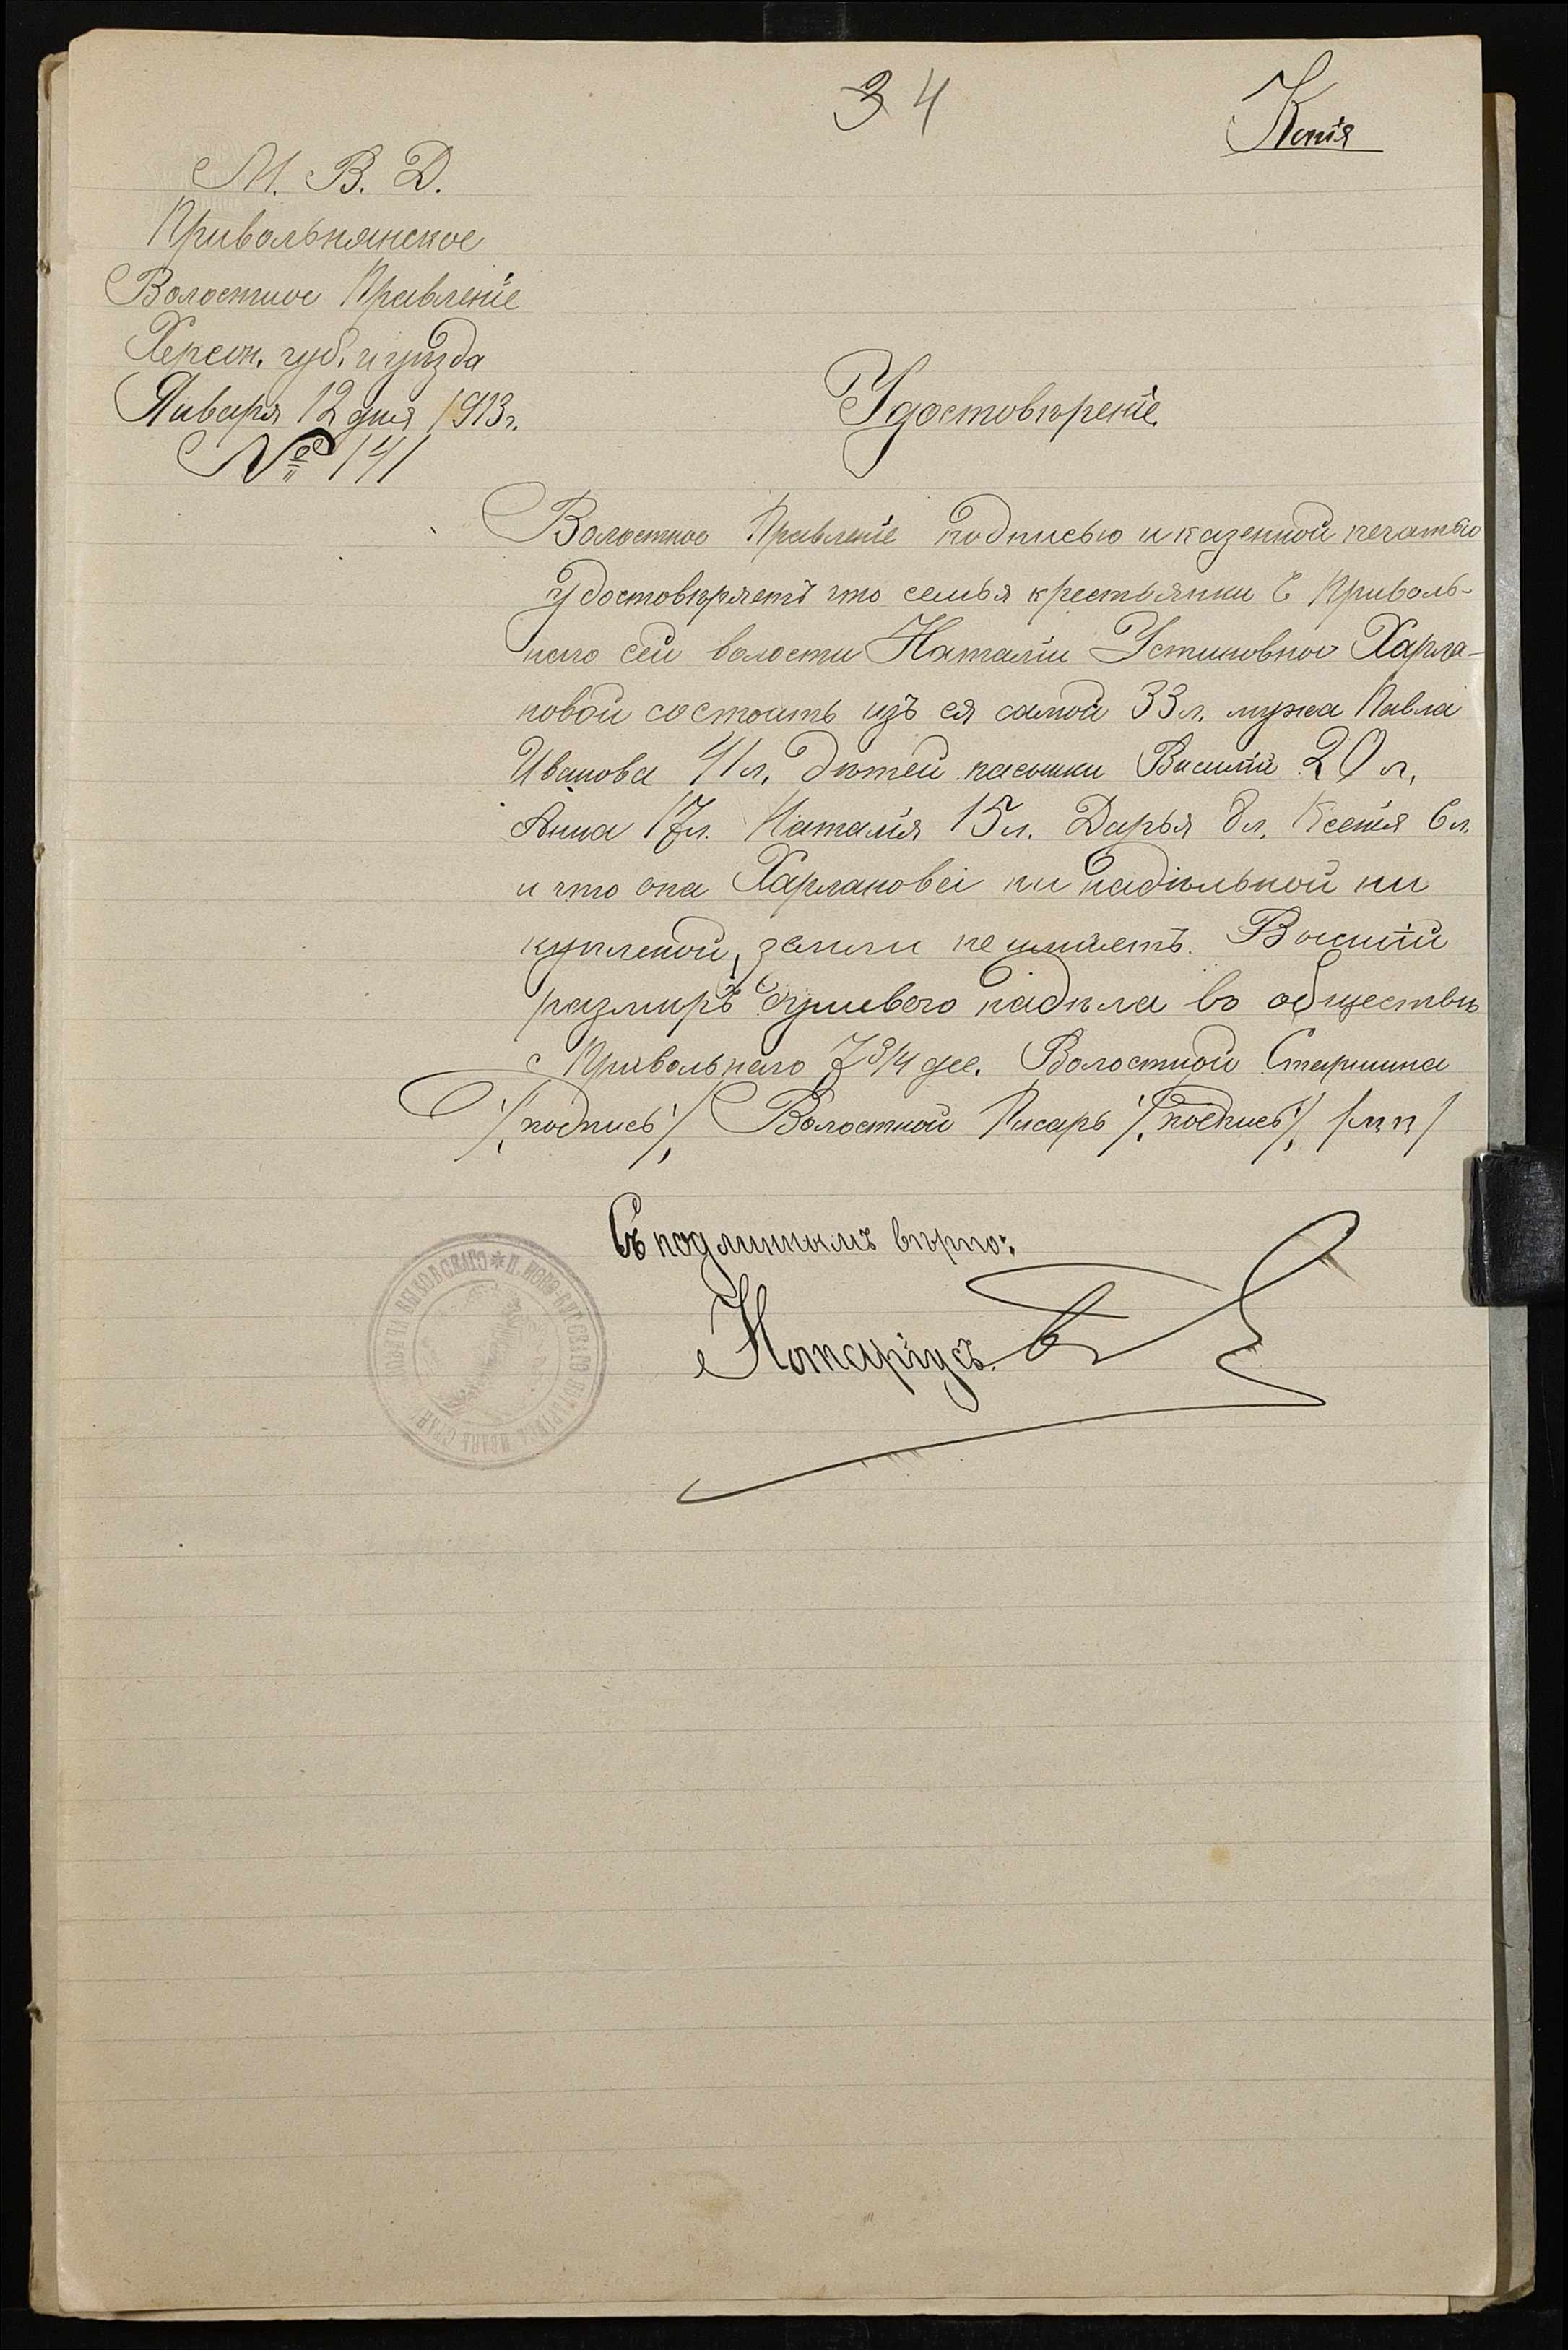 34
Копія
М. В. Д.
Привольнянское
Волостное Правленіе
Херсон. губ. и уѣзда
Января 12 дня 1913 г.
№ 141
Удостовѣреніе.
Волостное Правленіе подписью и казенной печатью
удостовѣряетъ что семья крестьянки С Приволь-
наго сей волости Наталіи Устиновной Харла-
новой состоитъ изъ ея самой 33 л. мужа Павла
Иванова 41 л. Дѣтей пасынки Василій 20 л.
Анна 17 л. Наталія 15 л. Дарья 8 л. Ксенія 6 л.
и что она Харланова ни надѣльной ни
купленой, земли не имѣетъ. Высшій
размѣръ душевого надѣла въ обществѣ
с Привольнаго 7 3/4 дес. Волостной Старшина
/подпись/ Волостной Писарь /подпись/ /мп/
Съ подлиннымъ вѣрно:
Нотаріусъ